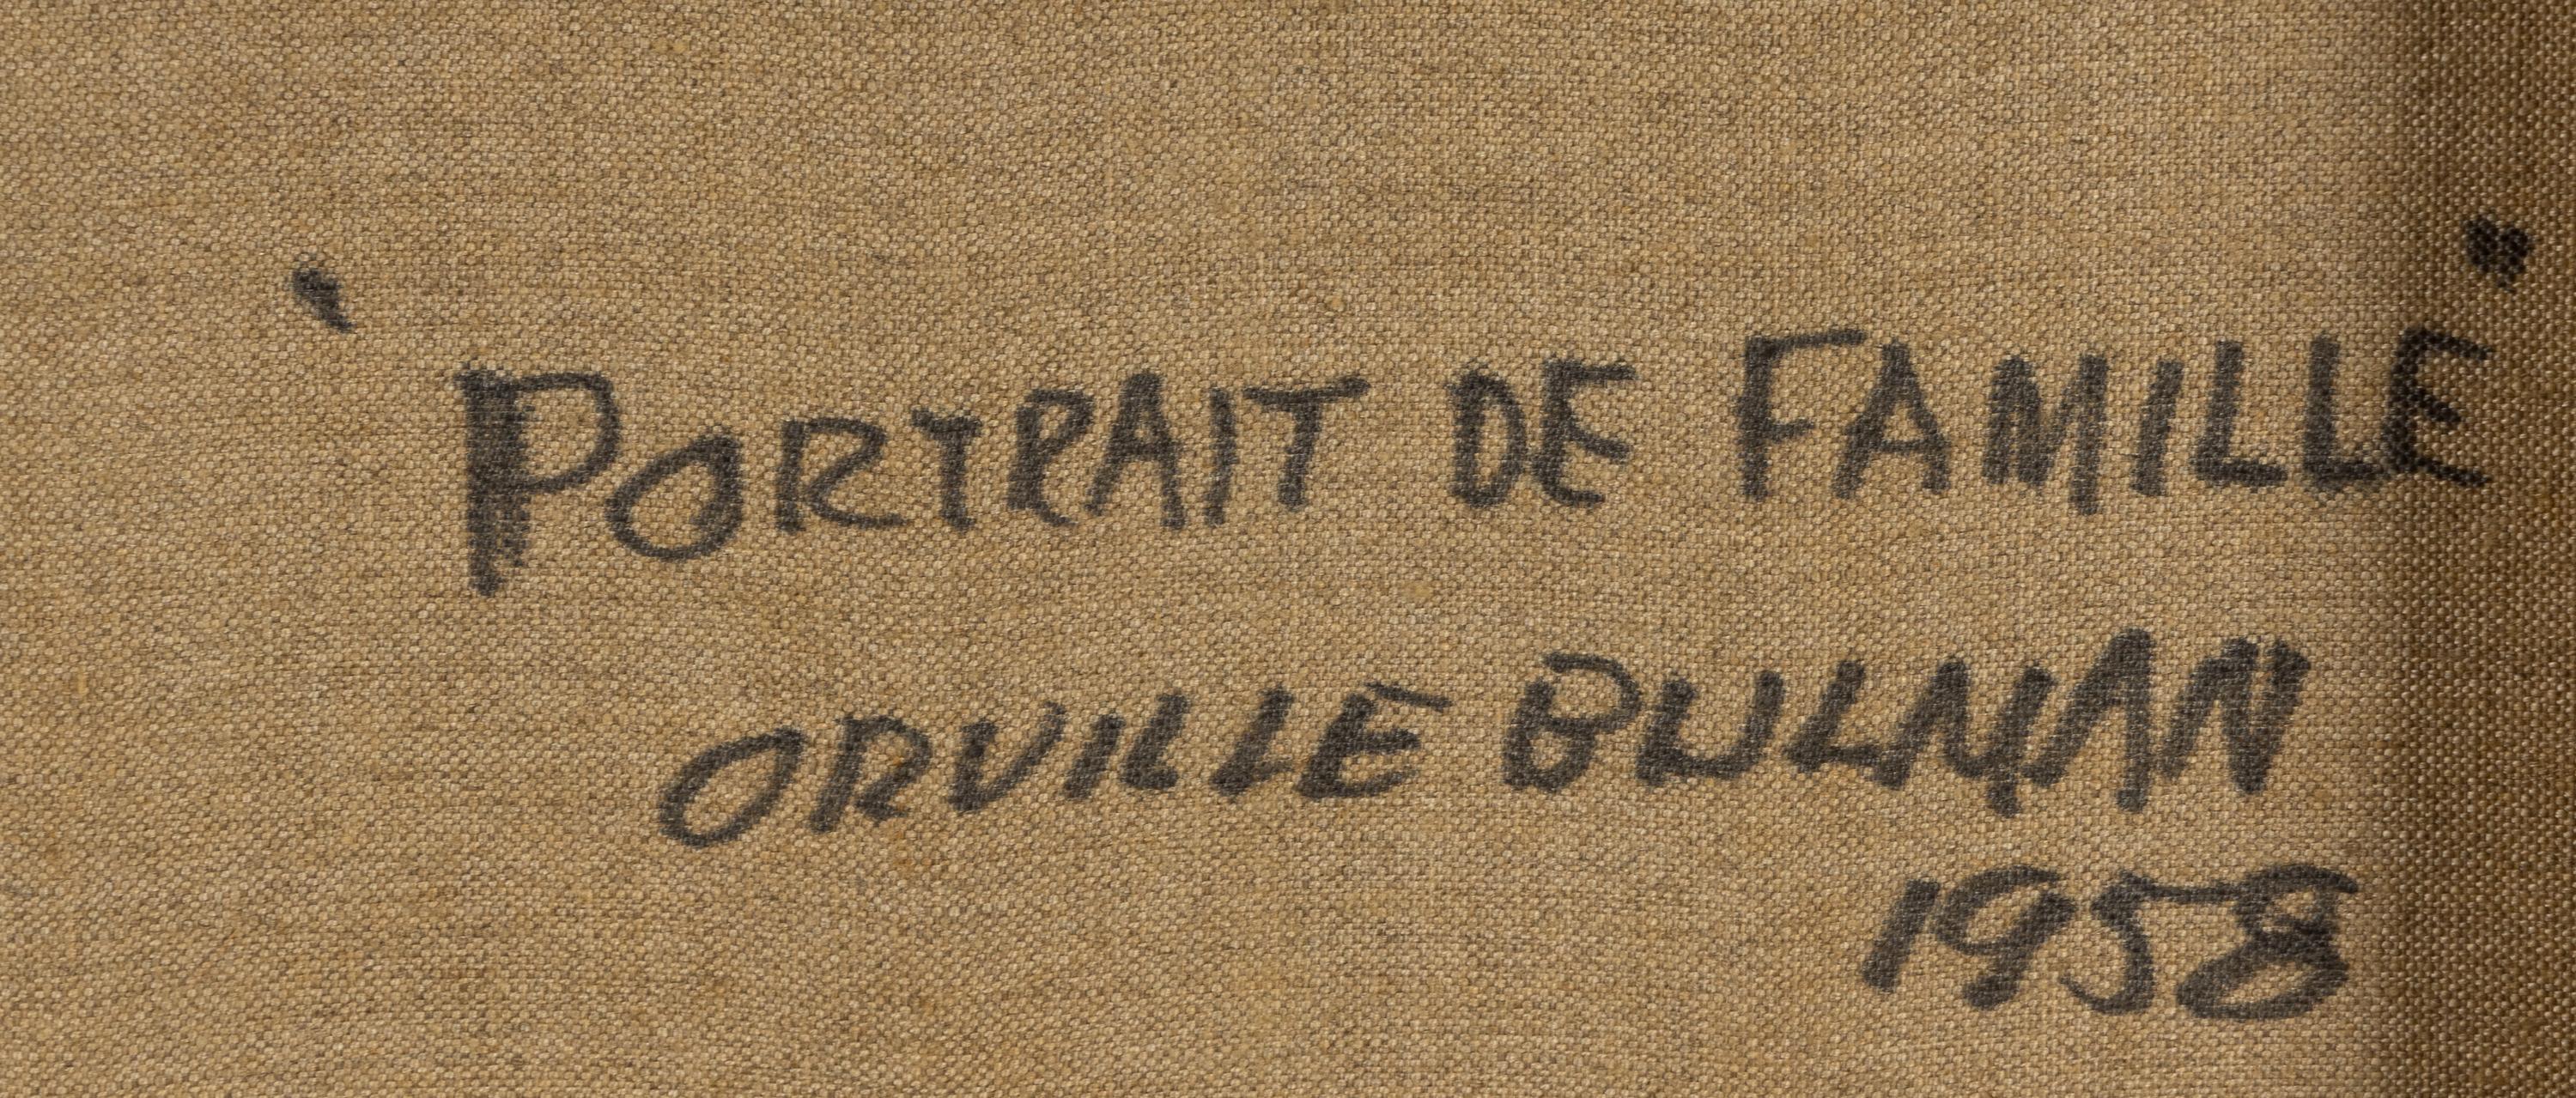 "PORTRAIT DE FAMILLE"
ORVILLE BULMAN
1958